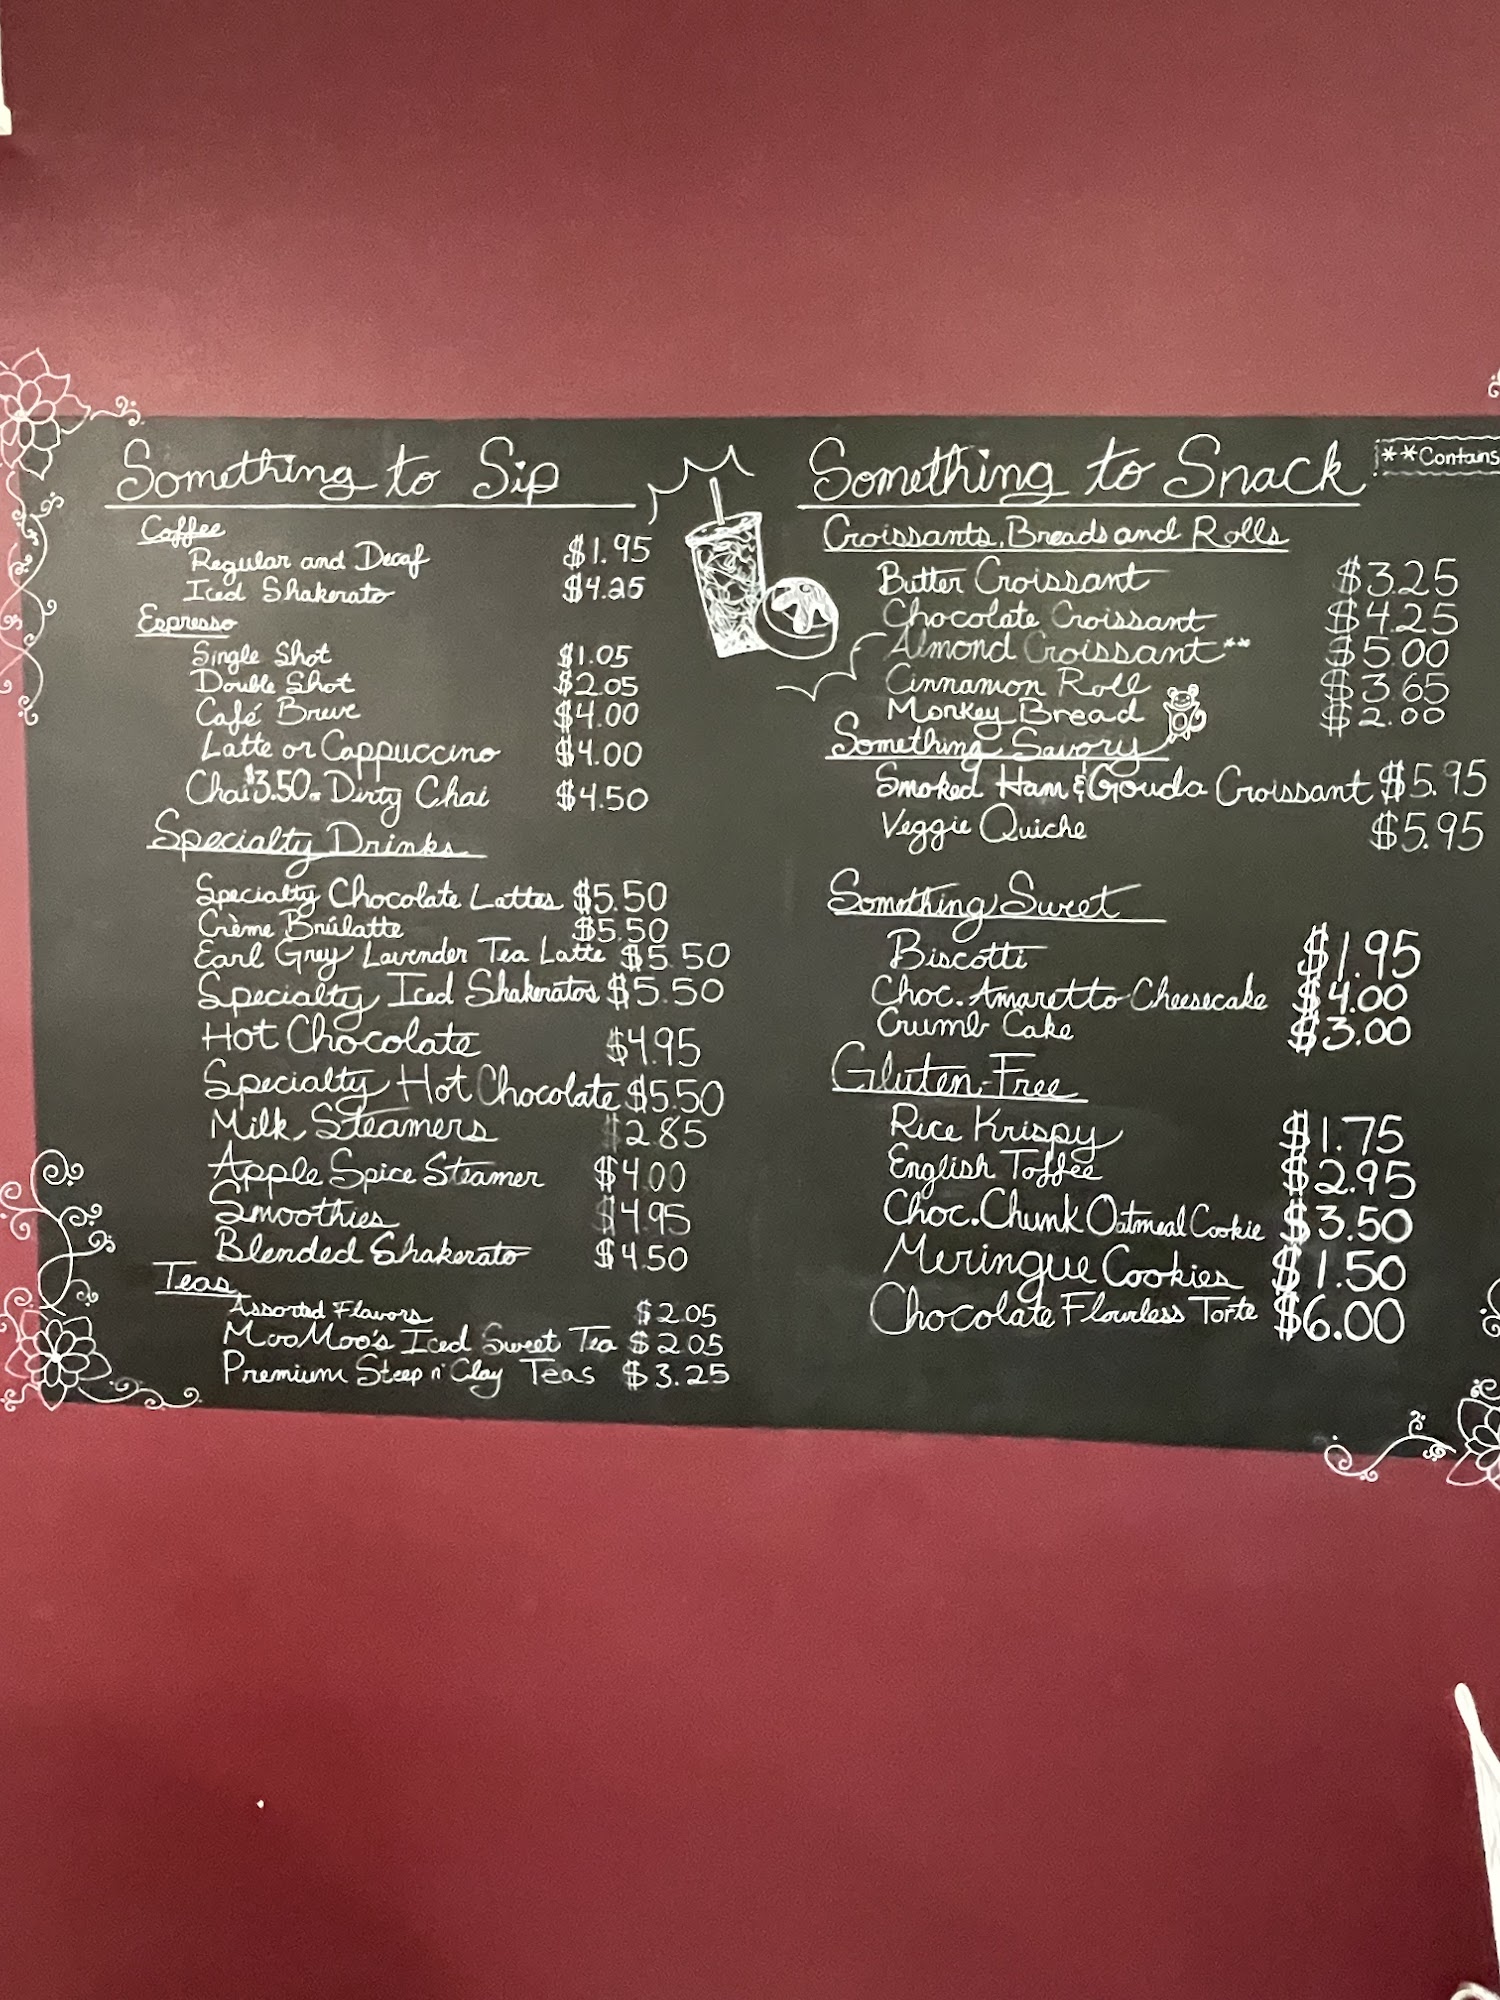 Something to Sip
Coffee
Regular and Decaf $1.95
Iced Shakerato $4.25
Espresso
Single Shot $1.05
Double Shot $2.05
Café Breve $4.00
Latte or Cappuccino $4.00
Chai $3.50. Dirty Chai $4.50
Specialty Drinks
Specialty Chocolate Lattes $5.50
Crème Brûlatte $5.50
Earl Grey Lavender Tea Latte $5.50
Specialty Iced Shakeratos $5.50
Hot Chocolate $4.95
Specialty Hot Chocolate $5.50
Milk Steamers $2.85
Apple Spice Steamer $4.00
Smoothies $4.95
Blended Shakerato $4.50
Teas
Assorted Flavors $2.05
MooMoo's Iced Sweet Tea $2.05
Premium Steep n' Clay Teas $3.25
Something to Snack
**Contains
Croissants, Breads and Rolls
Butter Croissant $3.25
Chocolate Croissant $4.25
Almond Croissant** $5.00
Cinnamon Roll $3.65
Monkey Bread $2.00
Something Savory
Smoked Ham & Gouda Croissant $5.95
Veggie Quiche $5.95
Something Sweet
Biscotti $1.95
Choc. Amaretto Cheesecake $4.00
Crumb Cake $3.00
Gluten-Free
Rice Krispy $1.75
English Toffee $2.95
Choc. Chunk Oatmeal Cookie $3.50
Meringue Cookies $1.50
Chocolate Flourless Torte $6.00